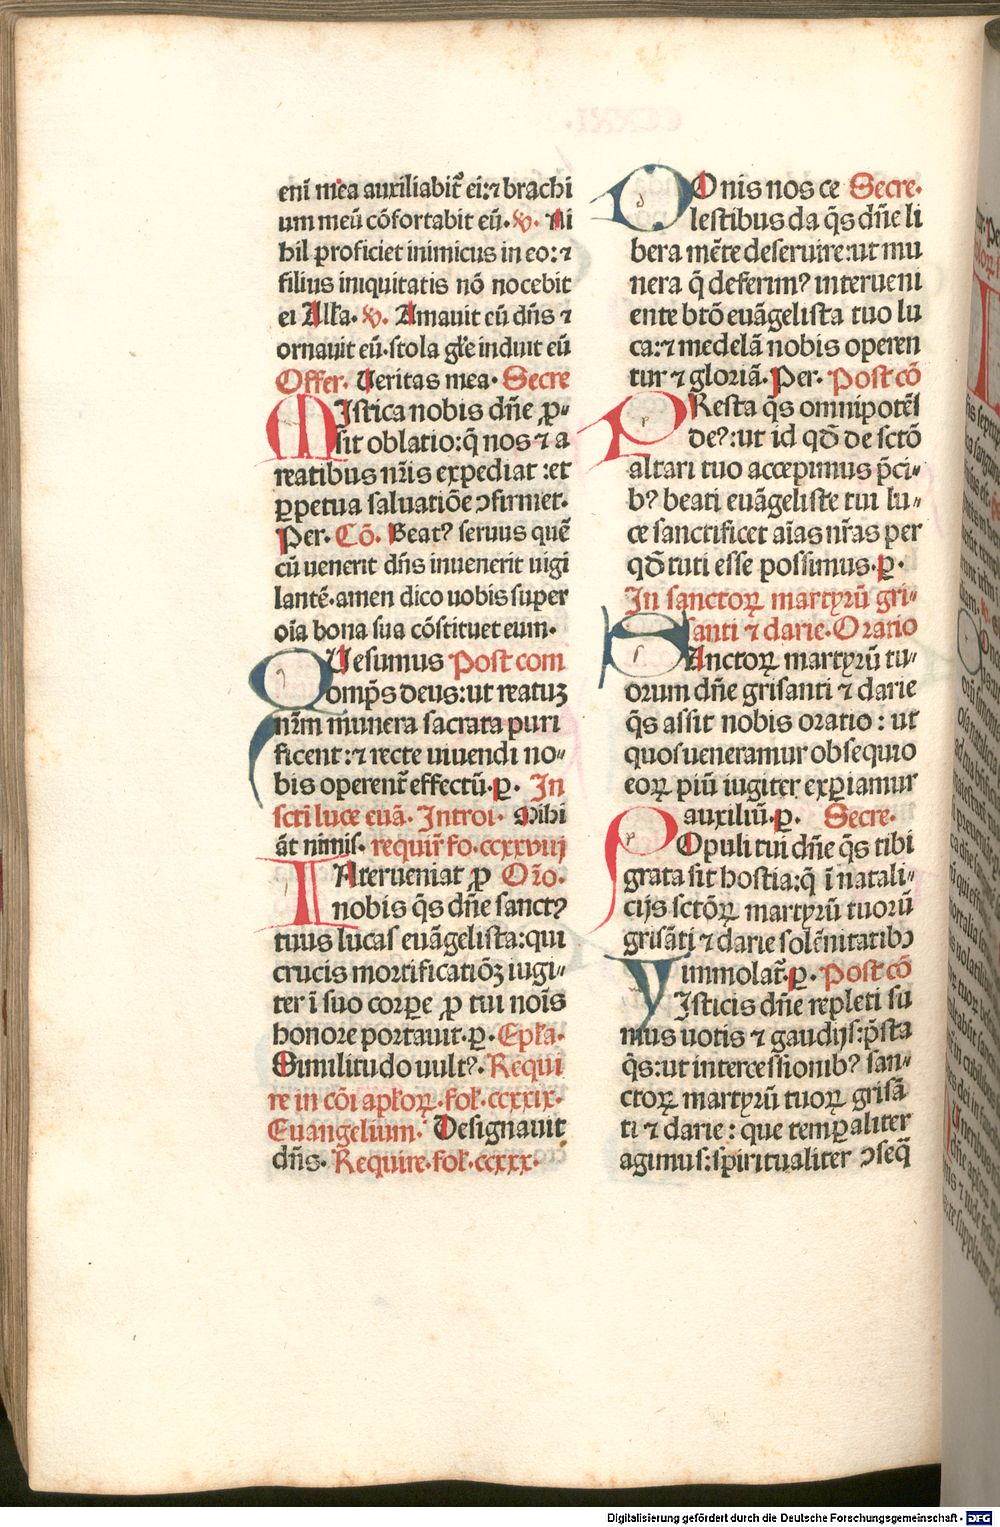 enī mea auxiliabit᷑ ei:⁊ brachi
um meū cōfortabit eū. ℣. Ni
hil proficiet inimicus in eo:⁊
filius iniquitatis nō nocebit
ei Alľa. ℣. Amauit eū dn̄s ⁊
ornauit eū.stola gľe induit eū
Offer. Veritas mea. Secre
MIstica nobis dn̄e ꝓ⸗
sit oblatio:q̄ nos ⁊ a
reatibus nr̄is expediat :et
ꝑpetua saluatiōe ↄfirmet.
Per. Cō. Beatꝰ seruus quē
cū uenerit dn̄s inuenerit uigi
lantē.amen dico uobis super
oīa bona sua cōstituet eum.
QUesumus Post com
omp̄s deus:ut reatuꝫ
nr̄m munera sacrata puri
ficent:⁊ recte uiuendi no⸗
bis operent᷑ effectū.ꝑ. In
scti luce euā. Introi. Mihi
āt nimis. requir᷑ fo.ccxxviij
INterueniat ꝓ Or̄o.
nobis q̄s dn̄e sanctꝰ
tuus lucas euāgelista:qui
crucis mortificatiōꝫ iugi⸗
ter ī suo corꝑe ꝓ tui noīs
honore portauit.ꝑ. Epľa.
Similitudo uultꝰ. Requi
re in cōi apľoꝝ.foľ.ccxxix.
Euangelium. Designauit
dn̄s. Require.foľ.ccxxx.
DOnis nos ce Secre.
lestibus da q̄s dn̄e li
bera mēte deseruire:ut mu
nera q̄ deferimꝰ interueni
ente btō euāgelista tuo lu
ca:⁊ medelā nobis operen
tur ⁊ gloriā. Per. Post cō
PResta q̄s omnipotēs
deꝰ:ut id qđ de sctō
altari tuo accepimus p̄ci⸗
bꝰ beati euāgeliste tui lu⸗
ce sanctificet aīas nr̄as per
qđ tuti esse possimus.ꝑ.
In sanctoꝝ martyrū gri⸗
santi ⁊ darie. Oratio
SAnctoꝝ martyrū tu⸗
orum dn̄e grisanti ⁊ darie
q̄s assit nobis oratio : ut
quos ueneramur obsequio
eoꝝ piū iugiter exꝑiamur
auxiliū.ꝑ. Secre.
POpuli tui dn̄e q̄s tibi
grata sit hostia:q̄ ī natali⸗
cijs sctōꝝ martyrū tuorū
grisāti ⁊ darie solēnitatibꝫ
immolat᷑.ꝑ. Post cō
MYsticis dn̄e repleti su
mus uotis ⁊ gaudijs:p̄sta
q̄s:ut intercessionibꝰ san⸗
ctoꝝ martyrū tuoꝝ grisā
ti ⁊ darie : que temꝑaliter
agimus:spiritualiter ↄseq̄
Digitalisierung gefördert durch die Deutsche Forschungsgemeinschaft - DFG